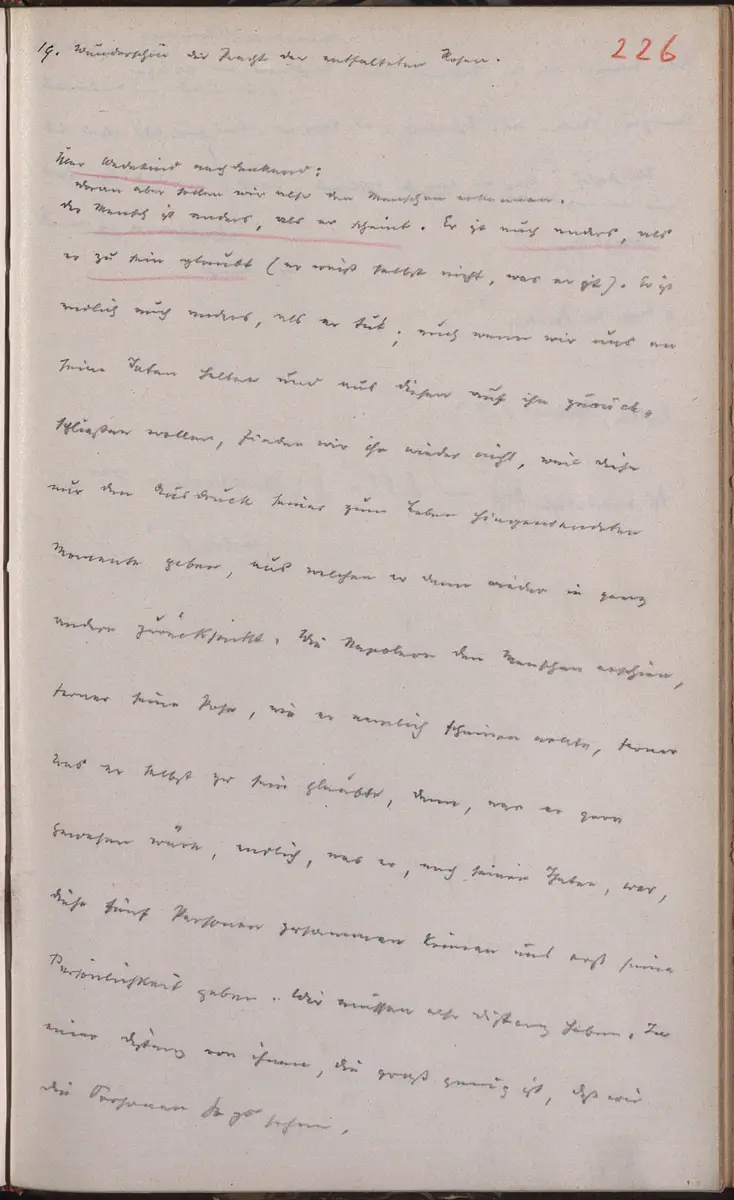 226
19. Wunderschön die Pracht der entfalteten Rosen.
Über Wedekind nachdenkend:
Woran aber sollen wir also den Menschen erkennen.
Der Mensch ist anders, als er scheint. Er ist auch anders, als
er zu sein glaubt (er weiß selbst nicht, was er ist). Er ist
endlich auch anders, als er tut; auch wenn wir uns an
seine Taten halten und aus diesen auf ihn zurück-
schließen wollen, finden wir ihn wieder nicht, weil diese
nur den Ausdruck seiner zum Leben hingewendeten
Momente geben, aus welchen er dann wieder in ganz
andere zurücksinkt. Wie Napoleon den Menschen erschien,
ferner seine Pose, wie er nemlich scheinen wollte, ferner
was er selbst zu sein glaubte, dann, was er gern
gewesen wäre, endlich, was er, nach seinen Thaten, war,
diese fünf Personen zusammen können uns erst seine
Persönlichkeit geben. Wir müssen also Distanz haben. In
einer Distanz von ihnen, die groß genug ist, daß wir
die Personen sehen.